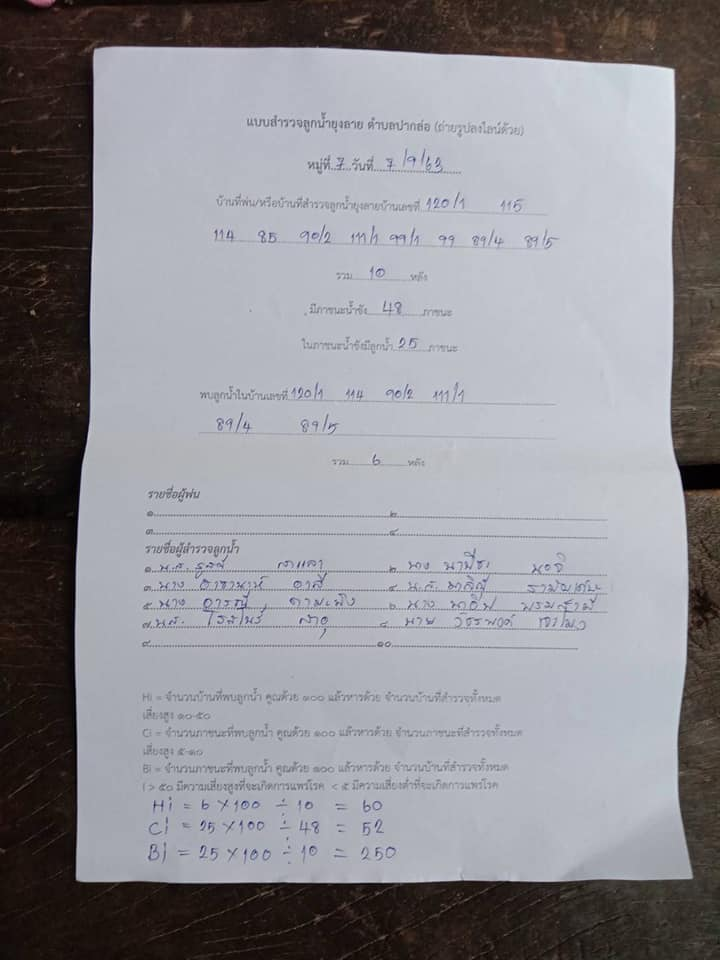 แบบสำรวจลูกน้ำยุงลาย ตำบลปากล่อ (ถ่ายรูปลงไลน์ด้วย)
หมู่ที่ 7 วันที่ 7/9/63
บ้านที่พ่น/หรือบ้านที่สำรวจลูกน้ำยุงลายบ้านเลขที่ 120/1 115
114 85 90/2 111/1 99/1 99 89/4 89/5
รวม 10 หลัง
มีภาชนะน้ำขัง 48 ภาชนะ
ในภาชนะน้ำขังมีลูกน้ำ 25 ภาชนะ
พบลูกน้ำในบ้านเลขที่ 120/1 114 90/2 111/1
89/4 89/5
รวม 6 หลัง
รายชื่อผู้พ่น
๑ ๒
๓ ๔
รายชื่อผู้สำรวจลูกน้ำ
๑. น.ส. ๒ นาง
๓. นาง ๔ น.ส.
๕ นาง ๖ นาง
๗. น.ส. ๘ นาย
๙ ๑๐
Hi = จำนวนบ้านที่พบลูกน้ำ คูณด้วย ๑๐๐ แล้วหารด้วย จำนวนบ้านที่สำรวจทั้งหมด
เสี่ยงสูง ๑๐-๕๐
Ci = จำนวนภาชนะที่พบลูกน้ำ คูณด้วย ๑๐๐ แล้วหารด้วย จำนวนภาชนะที่สำรวจทั้งหมด
เสี่ยงสูง ๕-๑๐
Bi = จำนวนภาชนะที่พบลูกน้ำ คูณด้วย ๑๐๐ แล้วหารด้วย จำนวนบ้านที่สำรวจทั้งหมด
> ๕๐ มีความเสี่ยงสูงที่จะเกิดการแพร่โรค < ๕ มีความเสี่ยงต่ำที่จะเกิดการแพร่โรค
Hi = 6 × 100 ÷ 10 = 60
Ci = 25 × 100 ÷ 48 = 52
Bi = 25 × 100 ÷ 10 = 250